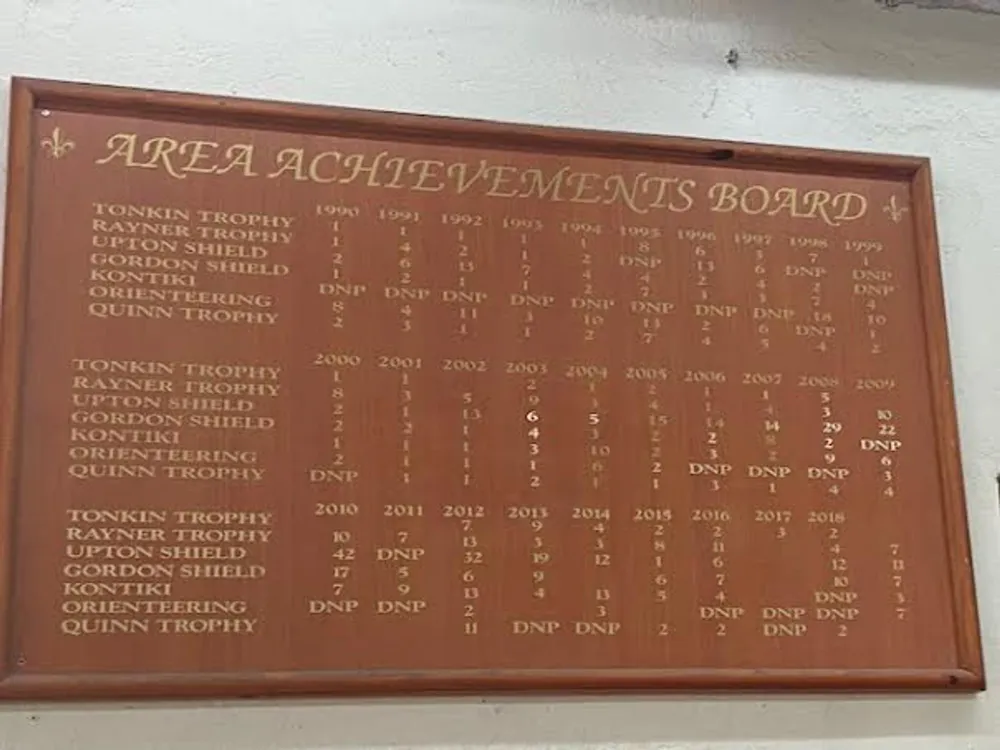 AREA ACHIEVEMENTS BOARD
1990 1991 1992 1993 1994 1995 1996 1997 1998 1999
TONKIN TROPHY 1 1 1 1 1 8 6 3 7 1
RAYNER TROPHY 1 4 2 1 2 DNP 13 6 DNP DNP
UPTON SHIELD 2 6 13 7 4 4 2 4 2 DNP
GORDON SHIELD 1 2 1 1 2 7 3 3 7 4
KONTIKI DNP DNP DNP DNP DNP DNP DNP DNP 18 10
ORIENTEERING 8 4 11 3 10 13 2 6 DNP 1
QUINN TROPHY 2 3 1 1 2 7 4 5 4 2
2000 2001 2002 2003 2004 2005 2006 2007 2008 2009
TONKIN TROPHY 1 1 2 1 2 1 1 5
RAYNER TROPHY 8 3 5 9 3 4 1 4 3 10
UPTON SHIELD 2 1 13 6 5 15 14 14 29 22
GORDON SHIELD 2 2 1 4 3 2 2 8 2 DNP
KONTIKI 1 1 1 3 10 2 3 2 9 6
ORIENTEERING 2 1 1 1 6 2 DNP DNP DNP 3
QUINN TROPHY DNP 1 1 2 1 1 3 1 4 4
2010 2011 2012 2013 2014 2015 2016 2017 2018
TONKIN TROPHY 7 9 4 2 2 3 2
RAYNER TROPHY 10 7 13 3 3 8 11 4 7
UPTON SHIELD 42 DNP 32 19 12 1 6 12 11
GORDON SHIELD 17 5 6 9 6 7 10 7
KONTIKI 7 9 13 4 13 5 4 DNP 3
ORIENTEERING DNP DNP 2 3 DNP DNP DNP 7
QUINN TROPHY 11 DNP DNP 2 2 DNP 2